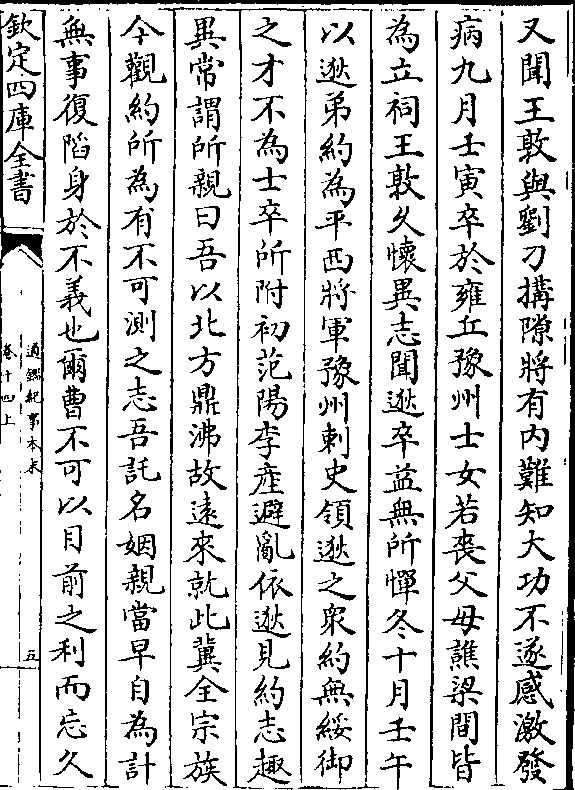 又聞王敦與劉刁搆隙將有内難知大功不遂感激發
病九月壬寅卒於雍丘豫州士女若喪父母譙梁間皆
為立祠王敦乆懷異志聞逖卒益無所憚冬十月壬午
以逖弟約為平西將軍豫州刺史領逖之衆約無綏御
之才不為士卒所附初范陽李產避亂依逖見約志趣
異常謂所親曰吾以北方鼎沸故遠來就此冀全宗族
今觀約所為有不可測之志吾託名姻親當早自為計
無事復陷身於不義也爾曹不可以目前之利而忘久
欽定四庫全書
通鑑紀事本末
卷十四上
五